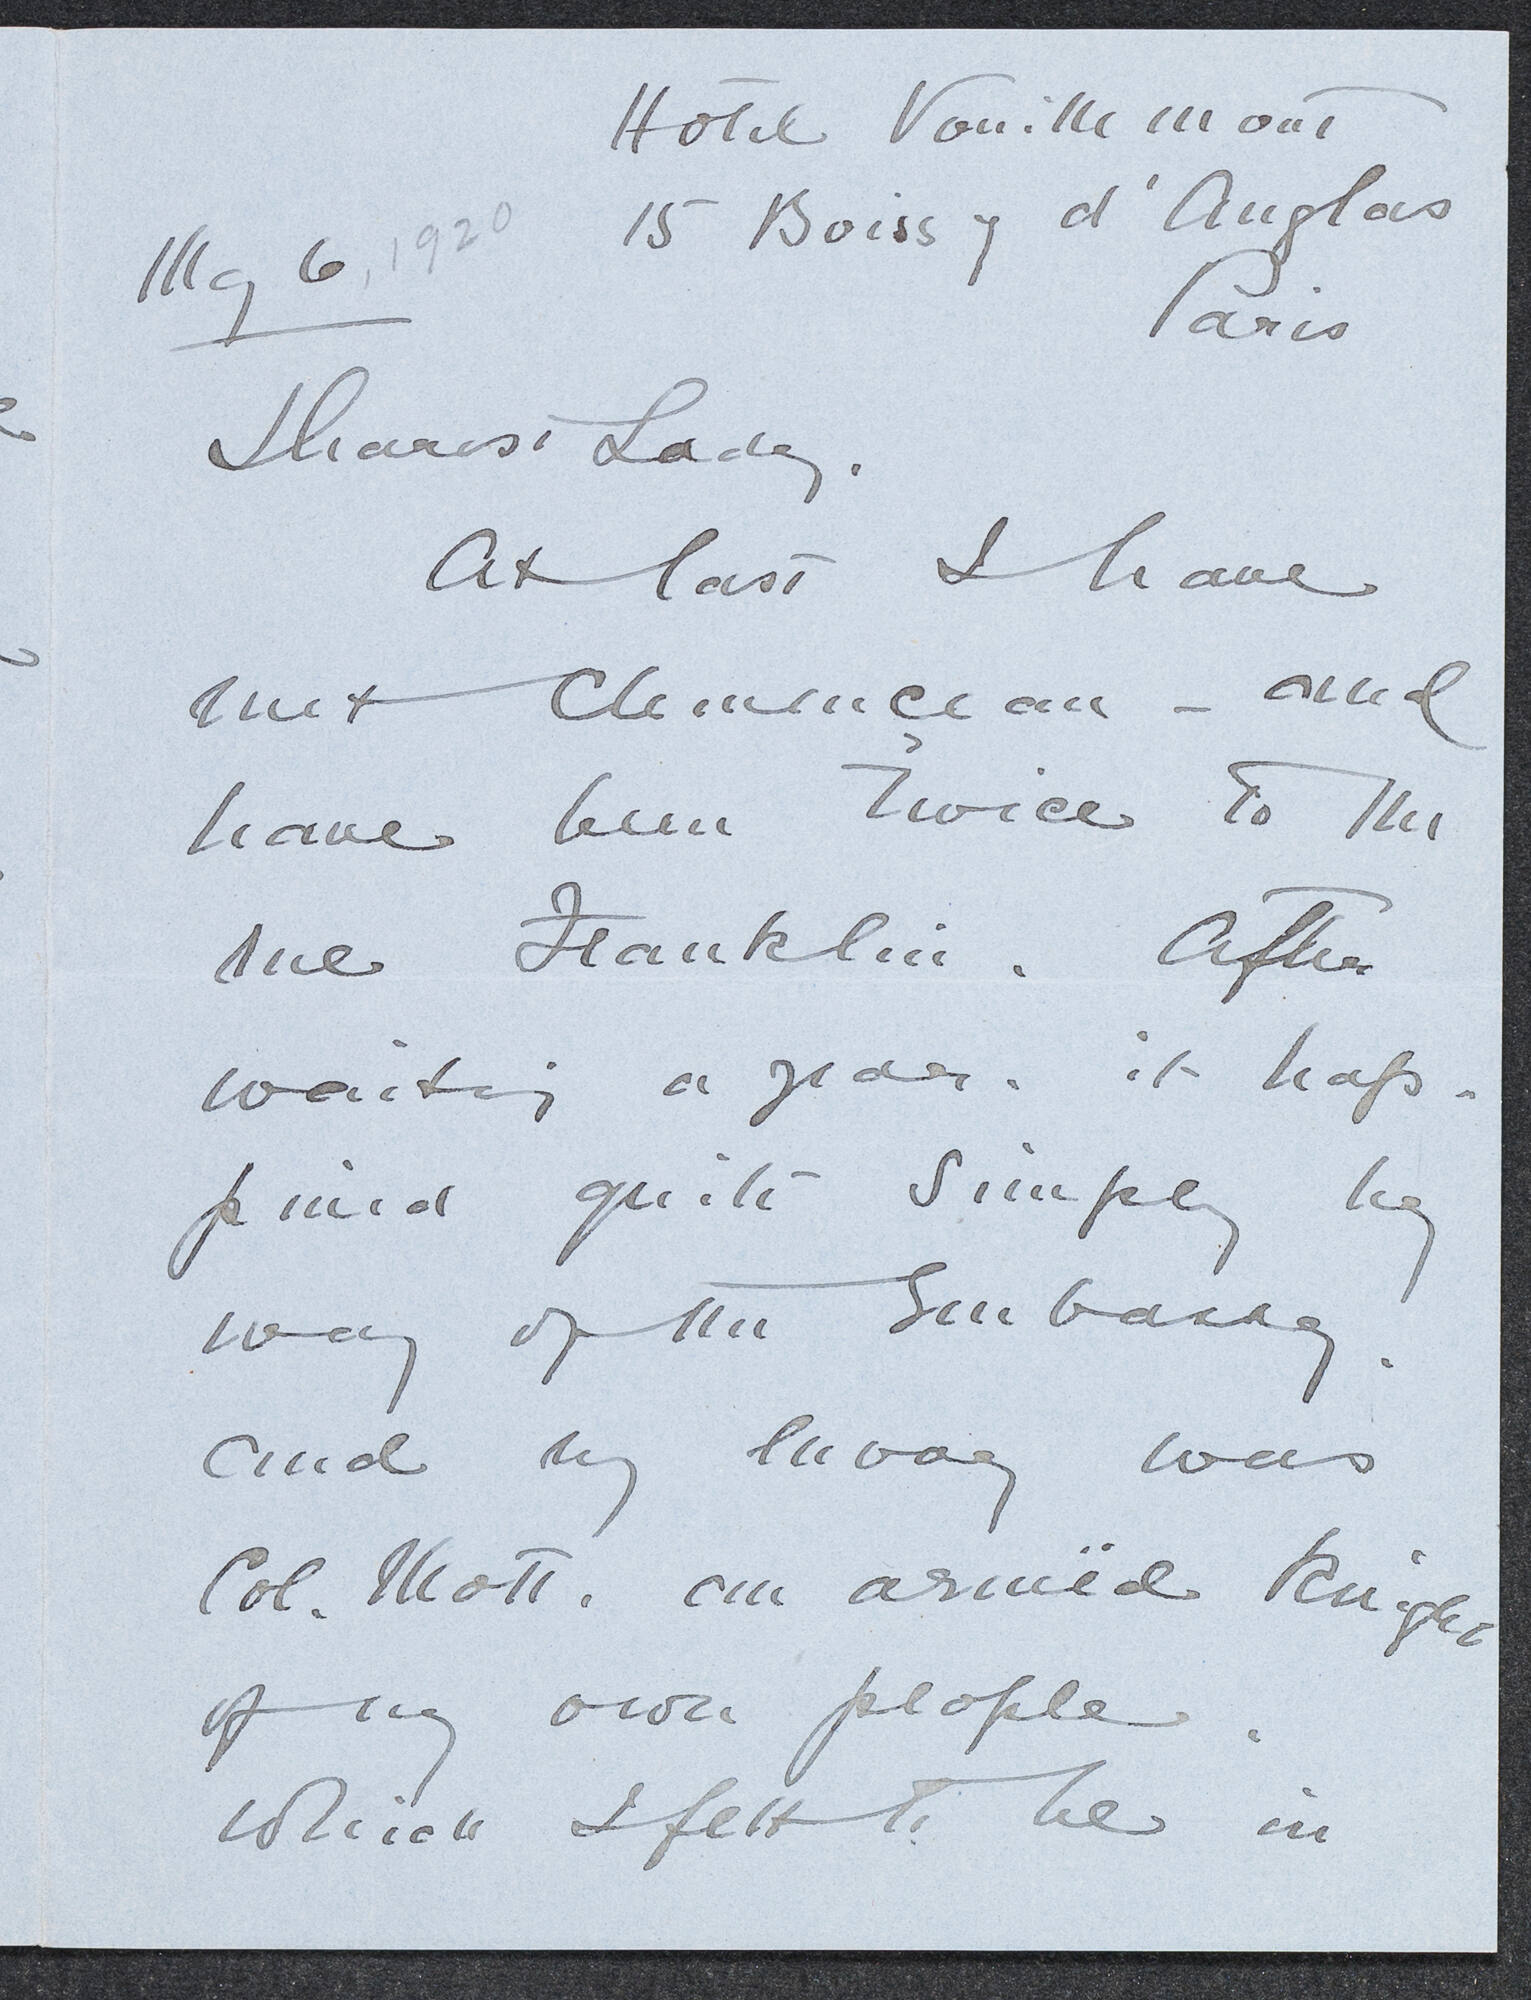 Hotel Vouillemont
15 Boissy d'Anglas
Paris
My 6, 1920
Dearest Lady.
At last I have
met Clemençeau - and
have been twice to the
rue Franklin. After
waiting a year. it hap-
pened quite simply by
way of the Embassy.
and my envoy was
Col. Mott. an armed Knight
of my own people.
Which I felt to be in